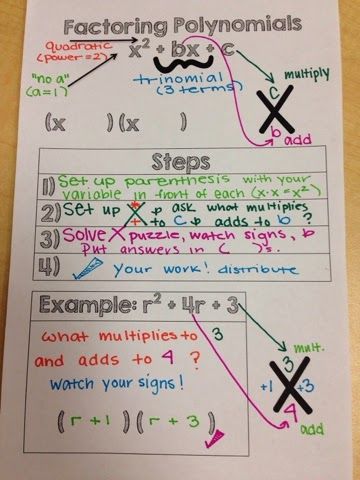 Factoring Polynomials
quadratic
(power=2)
x² + bx + c
"no a"
(a=1)
trinomial
(3 terms)
multiply
c
b
add
(x    )(x    )
Steps
1) Set up parenthesis with your
variable in front of each (x·x=x²)
2) Set up X & ask what multiplies
to c & adds to b ?
3) Solve X puzzle, watch signs, &
Put answers in (  )'s.
4) ✓ Your work! distribute
Example: r² + 4r + 3
what multiplies to 3
and adds to 4 ?
watch your signs!
(r + 1)(r + 3)
✓
mult.
3
+1 +3
4
add